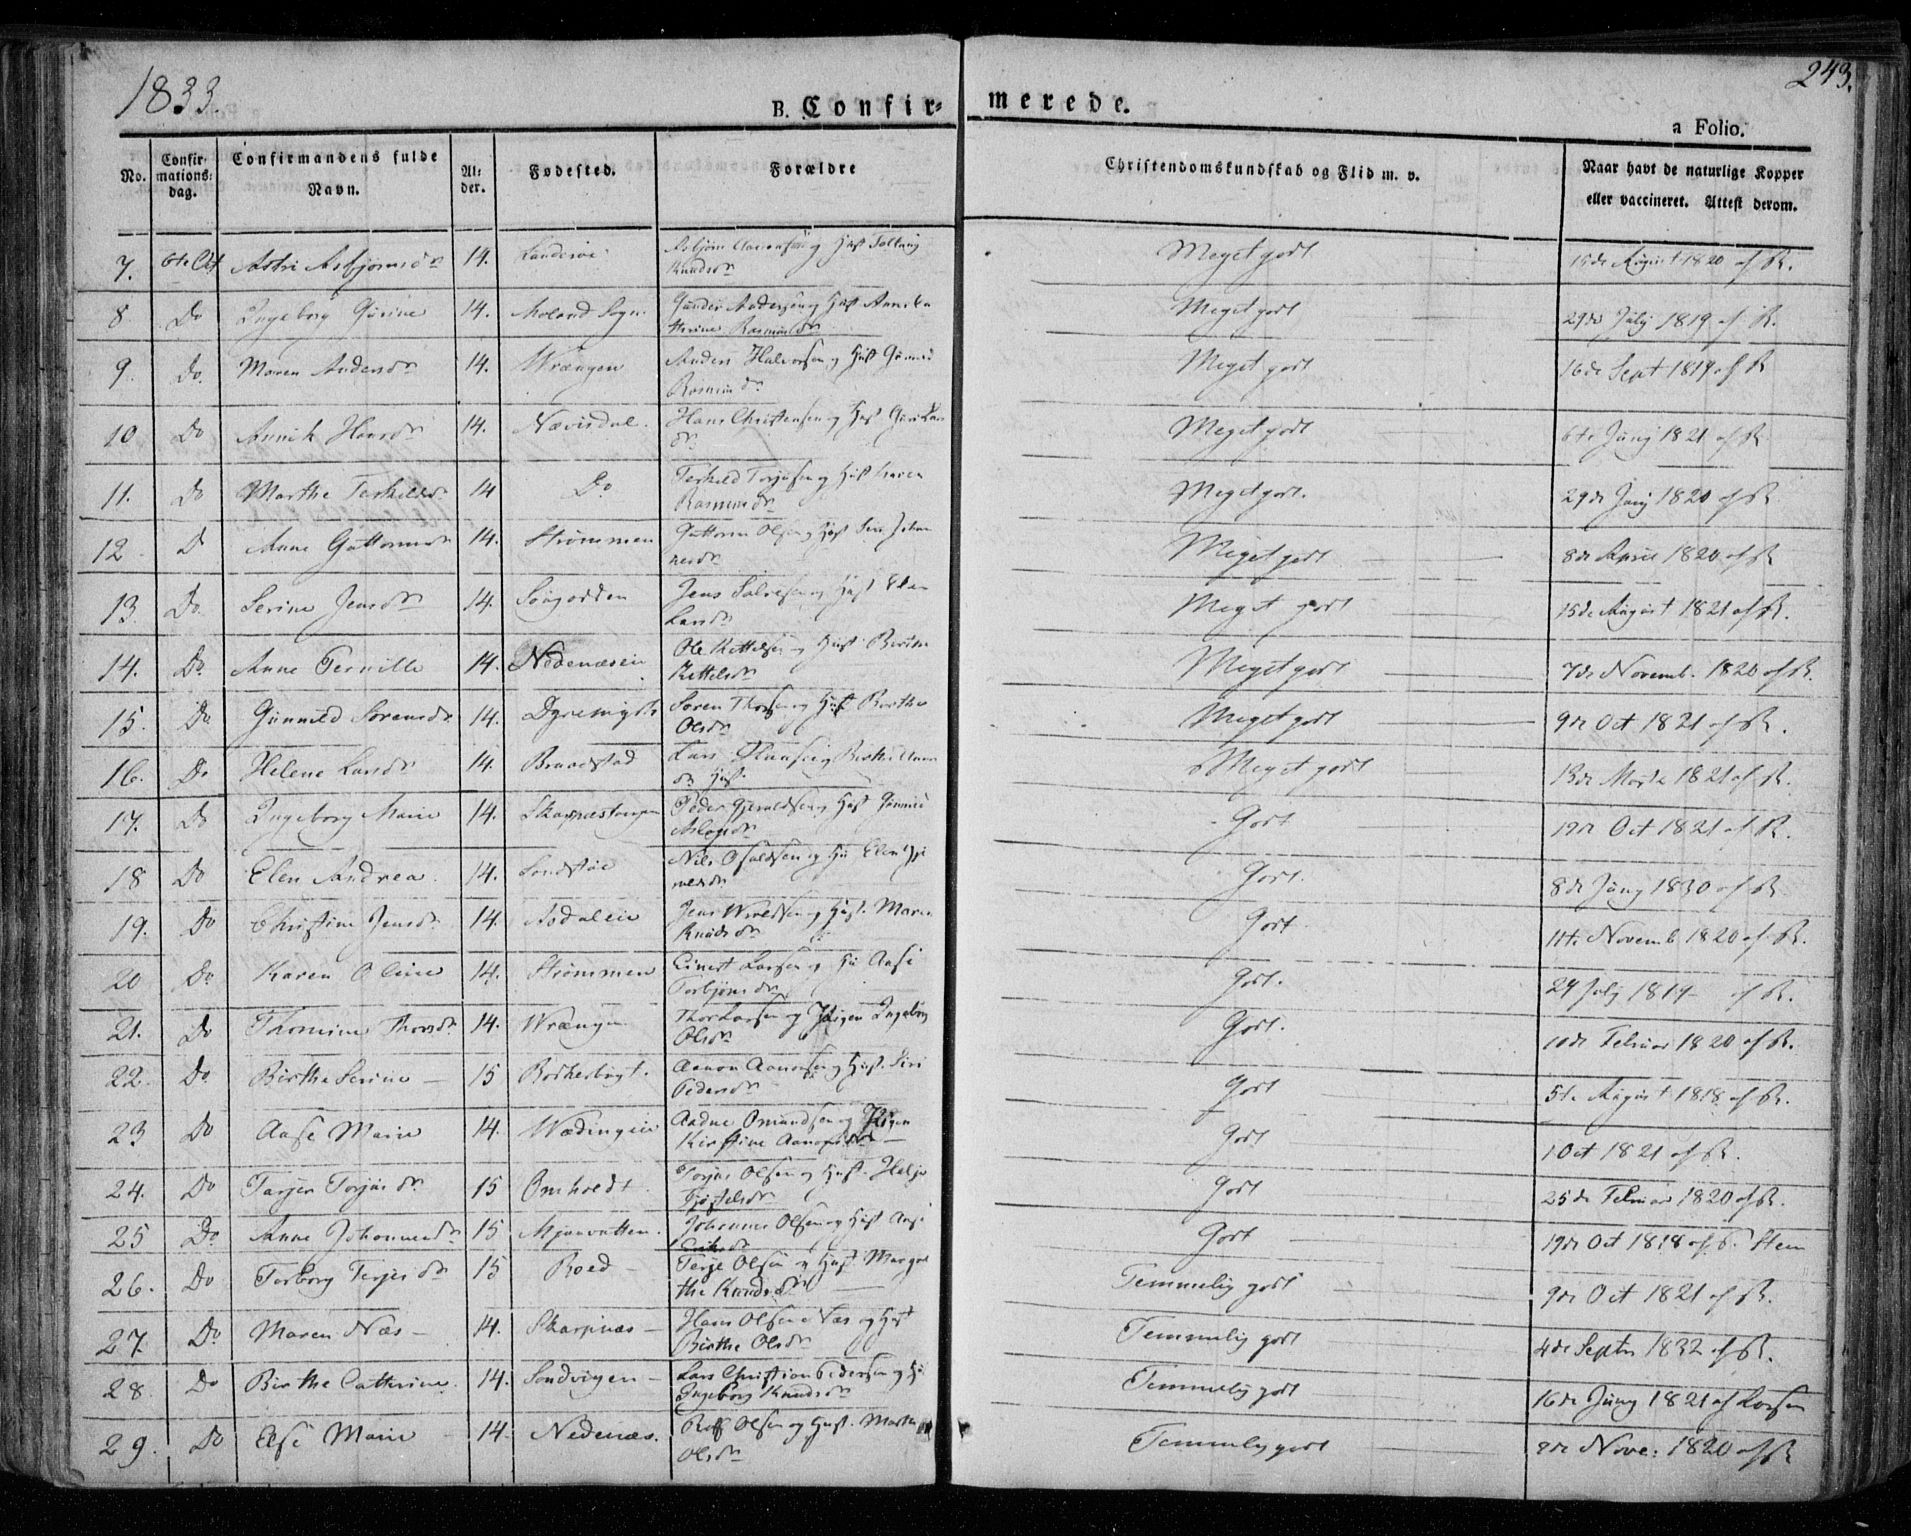 1833.
243.
B. Confir- merede.
a Folio.
No. Confirmations- dag. Confirmandens fulde Navn. Al- der. Fødested. Forældre Christendomskundskab og Flid m. v. Naar havt de naturlige Kopper eller vaccineret. Attest derom.
7. 6te Oct Astri Asbjørnsdr 14. Asbjørn Aanonsen og Hust Knudsdr Meget godt 15de August 1820 af R.
8 Do Ingeborg Gurine 14. Moland Sogn Gunder Andersen og Hust Anne Ca therine Rasmusdr Meget godt 29de July 1819 af R.
9. Do. Maren Andersdr 14. Wrængen Anders Halvorsen og Hust Gunnild Rasmusdr Meget godt 16de Sept 1819 af R
10 Do Annik Hansdr 14. Nævisdal. Hans Christensen og Hust Guri Lars dr Meget godt 6te Juny 1821 af R
11. Do Marthe Terkildsdr 14 Do Terkild Torjusen og Hust Maren Rasmusdr Meget godt. 29de Juny 1820 af R
12 D Anne Guttormsdr 14. Strømmen Guttorm Olsen og Hust Johan nesdr Meget godt 8de April 1820 af R
13 Do. Serine Jensdr 14. Songodden Jens Salvesen og Hust Ellen Larsdr Meget godt 15de August 1821 af R.
14. Do. Anne Pernille 14. Nedenæseie Ole Kittelsen og Hust Berthe Kittelsdr Meget godt 7de Novemb. 1820 af R.
15. Do Gunnild Sørensdr 14. Søren Thorsen og Hust Berthe Olsdr Meget godt 9de Oct 1821 af R.
16. Do Helene Larsdr 14. Braastad Lars Hansen og Berthe dr Hust. Meget godt 13de Marts 1821 af R.
17. Do Ingeborg Marie 14. Peder Gjeruldsen og Hust Gunnild Aslagsdr Godt 19de Oct 1821 af R.
18 Do Elen Andrea. 14. Sandstøe Nils Osuldsen og Hu Elen mersdr Godt. 8de Juny 1830 af R
19. Do Christine Jensdr 14. Asdaleie Jens Wroldsen og Hust. Maren Knudsdr Godt. 11te Novemb 1820 af R.
20 Do Karen Oline 14. Strømmen Einert Larsen og Hu Aase Torbjørnsdr Godt. 24 July 1819 af R.
21. Do Thomine Thorsdr 14. Wrængen Thor Larsen og Pigen Ingeborg Olsdr Godt. 10de Februar 1820 af R.
22. Do Birthe Serine — 15 Borkerbugt. Aanon Aanonsen og Hust. Siri Pedersdr Godt 5te August 1818 af R.
23 Do Aase Marie 14. Wædingeie Aadne Omundsen og Pigen Kirstine Aanonsdr Godt 1 Oct 1821 af R.
24. Do Tarjer Torjusdr 15 Omholdt Torjus Olsen og Hust. Helje Godt 25de Februar 1820 af R.
25 Do Anne Johannesdr 15 Mjaavatten. Johannes Olsen og Hust Aase Eriksdr Godt 19de Oct 1818 af P. Steen
26. Do Torborg Terjesdr 15 Roed — Terje Olsen og Hust Margre the Knudsdr Temmelig godt 9de Oct 1821 af R.
27. Do Maren Næs — 14. Skarpnæs — Hans Olsen Næs og Hust Birthe Olsdr Temmelig godt 4de Septr 1832 af R.
28 Do Birthe Cathrine. 14. Sandvigen — Lars Christian Pedersen og Hu Ingeborg Knudsdr Temmelig godt 16de Juny 1821 af Larsen
29. Do Else Marie — 14. Nedenæs. Rolf Olsen og Hust. Marthe Olsdr Temmelig godt 8de Nove: 1820 af R